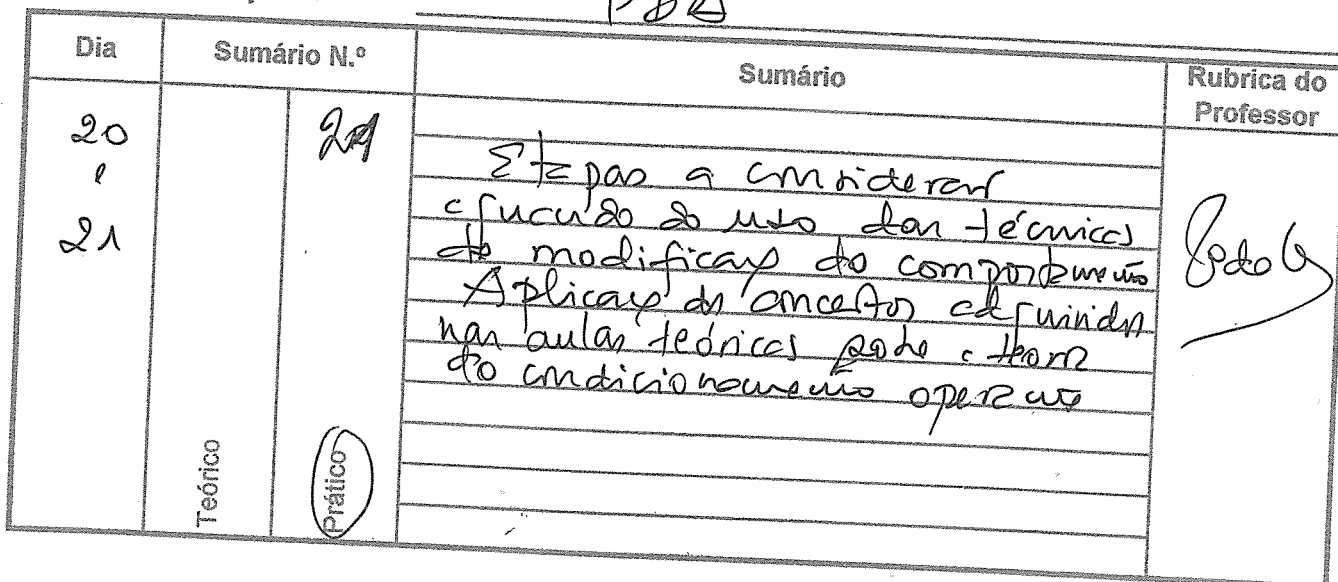 Dia Sumário N.º Sumário Rubrica do Professor
20 e 21
Etapas a considerar
do uso das técnicas
de modificação do comportamento
Aplicação dos conceitos adquiridos
nas aulas teóricas sobre a teoria
do condicionamento operante
Teórico Prático